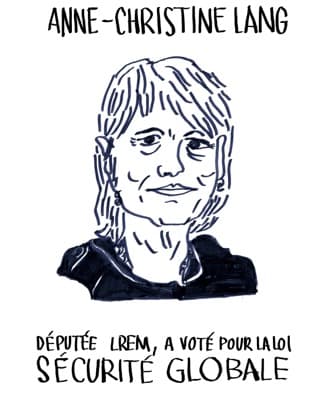 ANNE-CHRISTINE LANG
DÉPUTÉE LREM, A VOTÉ POUR LA LOI
SÉCURITÉ GLOBALE